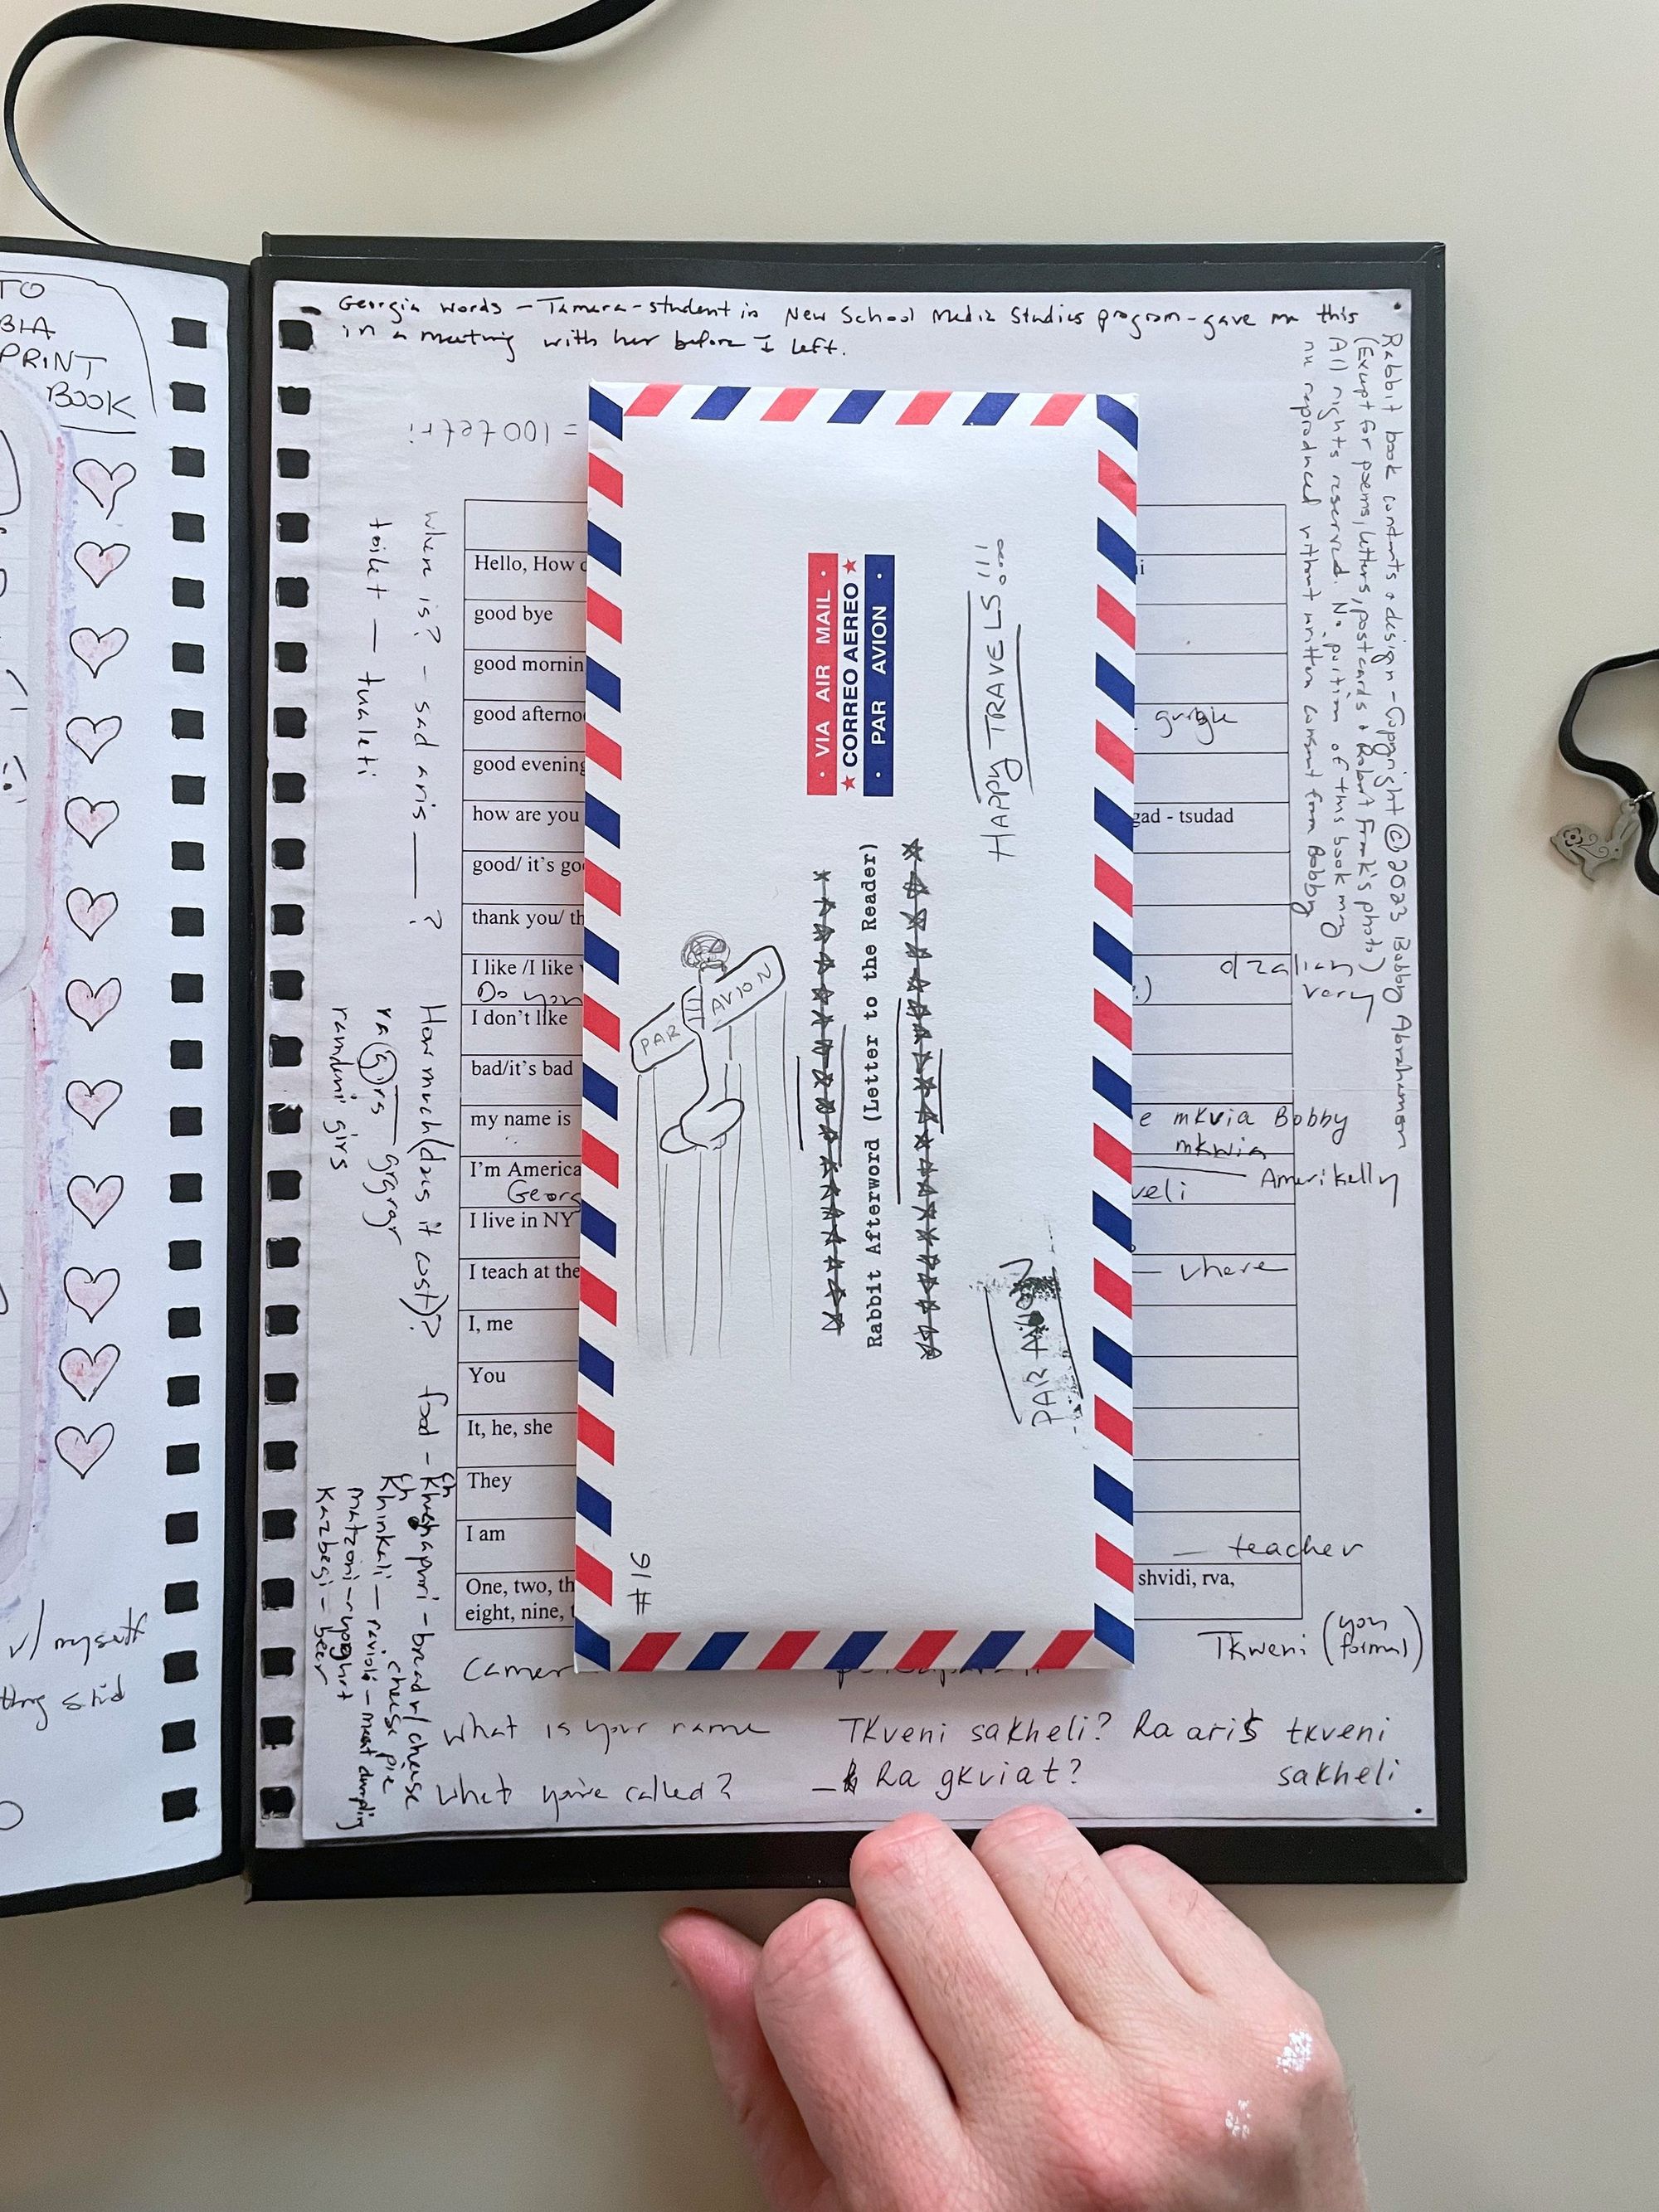 TO
BIA
PRINT
BOOK
w/ myself
Georgia words - Tamara - student in New School Media Studies program - gave me this
in a meeting with her before I left.
Rabbit book contents & design - Copyright © 2023 Bobby Abrahamson
(Except for poems, letters, postcards & Robert Frank's photo)
All rights reserved. No portion of this book may
be reproduced without written consent from Bobby
= 100 tetri
where is? - sad aris ____ ?
toilet - tualeti
How much (does it cost)?
ra girs
ramdeni girs
food - Khachapuri - bread w/ cheese
cheese pie
Khinkali - ravioli - meat dumpling
matzoni - yoghurt
Kazbegi - beer
Hello, How
good bye
good mornin
good afterno
good evening
how are you
gad - tsudad
good/ it's go
thank you/ th
I like /I like
Do you
very
I don't like
bad/it's bad
my name is
e mkvia Bobby
mkwia
I'm America
Amerikelly
Georg
veli
I live in NY
I teach at the
- where
I, me
You
It, he, she
They
I am
- teacher
One, two, th
shvidi, rva,
eight, nine,
Tkweni (you formal)
Camer
What is your name
Tkveni sakheli? Ra aris tkveni
sakheli
What you're called?
- Ra gkviat?
HAPPY TRAVELS!!!
• VIA AIR MAIL •
CORREO AEREO
• PAR AVION •
Rabbit Afterword (Letter to the Reader)
PAR AVION
PAR AVION
#16